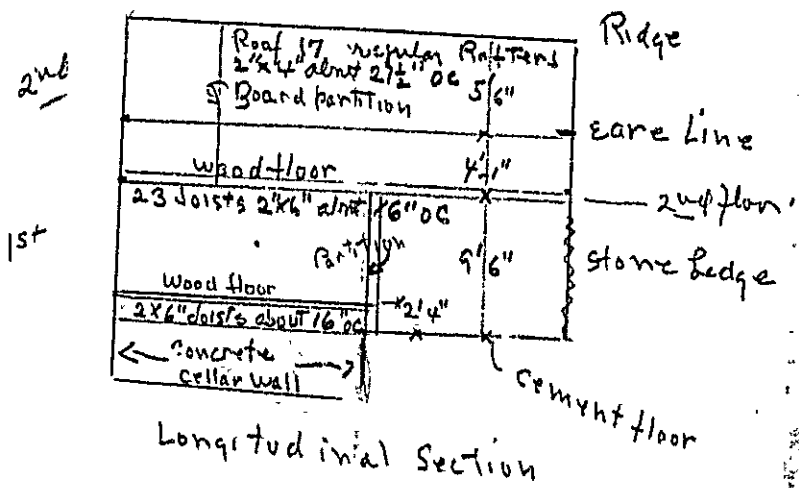 Ridge
2nd
Roof 17 regular Rafters
2"x4" about 27½" OC
5'6"
Board partition
Eave Line
4'-1"
Wood floor
2nd floor
23 Joists 2"x6" about 16" OC
1st
Partition
9'6"
Stone Ledge
Wood floor
2'4"
2x6" Joists about 16" OC
Concrete
Cellar Wall
Cement floor
Longitudinial Section